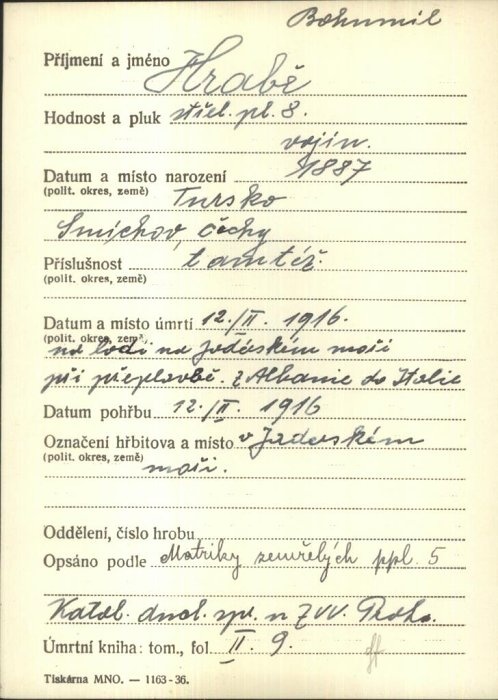 Bohumil
Příjmení a jméno Hrabě
Hodnost a pluk střel. pl. 8.
vojín.
Datum a místo narození 1887
(polit. okres, země) Tursko
Smíchov, Čechy
Příslušnost tamtéž.
(polit. okres, země)
Datum a místo úmrtí 12./II. 1916.
(polit. okres, země)
na lodi na Jaderském moři
při přeplavbě z Albanie do Italie
Datum pohřbu 12./II. 1916
Označení hřbitova a místo v Jaderském
(polit. okres, země) moři.
Oddělení, číslo hrobu
Opsáno podle Matriky zemřelých ppl. 5
Katol. duch. spr. n ZVV. Praha.
Úmrtní kniha: tom., fol. II. 9.
Tiskárna MNO. — 1163-36.